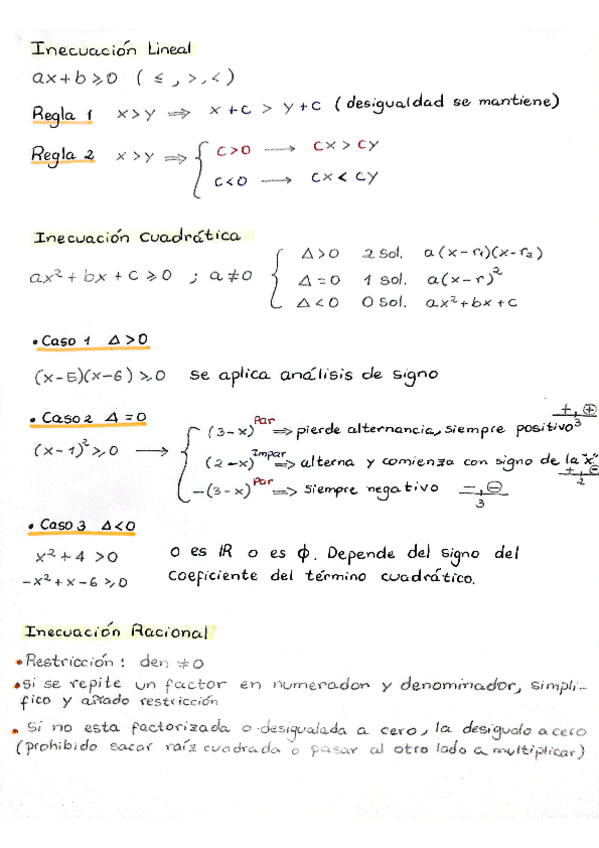 Inecuación Lineal
ax+b ≥ 0 ( ≤ , > , < )
Regla 1 x>y ⇒ x+c > y+c (desigualdad se mantiene)
Regla 2 x>y ⇒ { c>0 → cx > cy
c<0 → cx < cy
Inecuación Cuadrática
ax² + bx + c ≥ 0 ; a≠0
Δ>0 2 sol. a(x-r₁)(x-r₂)
Δ=0 1 sol. a(x-r)²
Δ<0 0 sol. ax²+bx+c
• Caso 1 Δ>0
(x-5)(x-6) ≥ 0 se aplica análisis de signo
• Caso 2 Δ=0
(x-1)² ≥ 0 →
(3-x)^Par ⇒ pierde alternancia, siempre positivo +, ⊕ 3
(2-x)^Impar ⇒ alterna y comienza con signo de la "x" +, ⊖ 2
-(3-x)^Par ⇒ siempre negativo -, ⊖ 3
• Caso 3 Δ<0
x² + 4 > 0 o es ℝ o es ϕ. Depende del signo del
-x² + x - 6 ≥ 0 coeficiente del término cuadrático.
Inecuación Racional
• Restricción: den ≠ 0
• si se repite un factor en numerador y denominador, simpli-
fico y añado restricción
• Si no esta factorizada o desigualada a cero, la desigualo a cero
(prohibido sacar raíz cuadrada o pasar al otro lado a multiplicar)